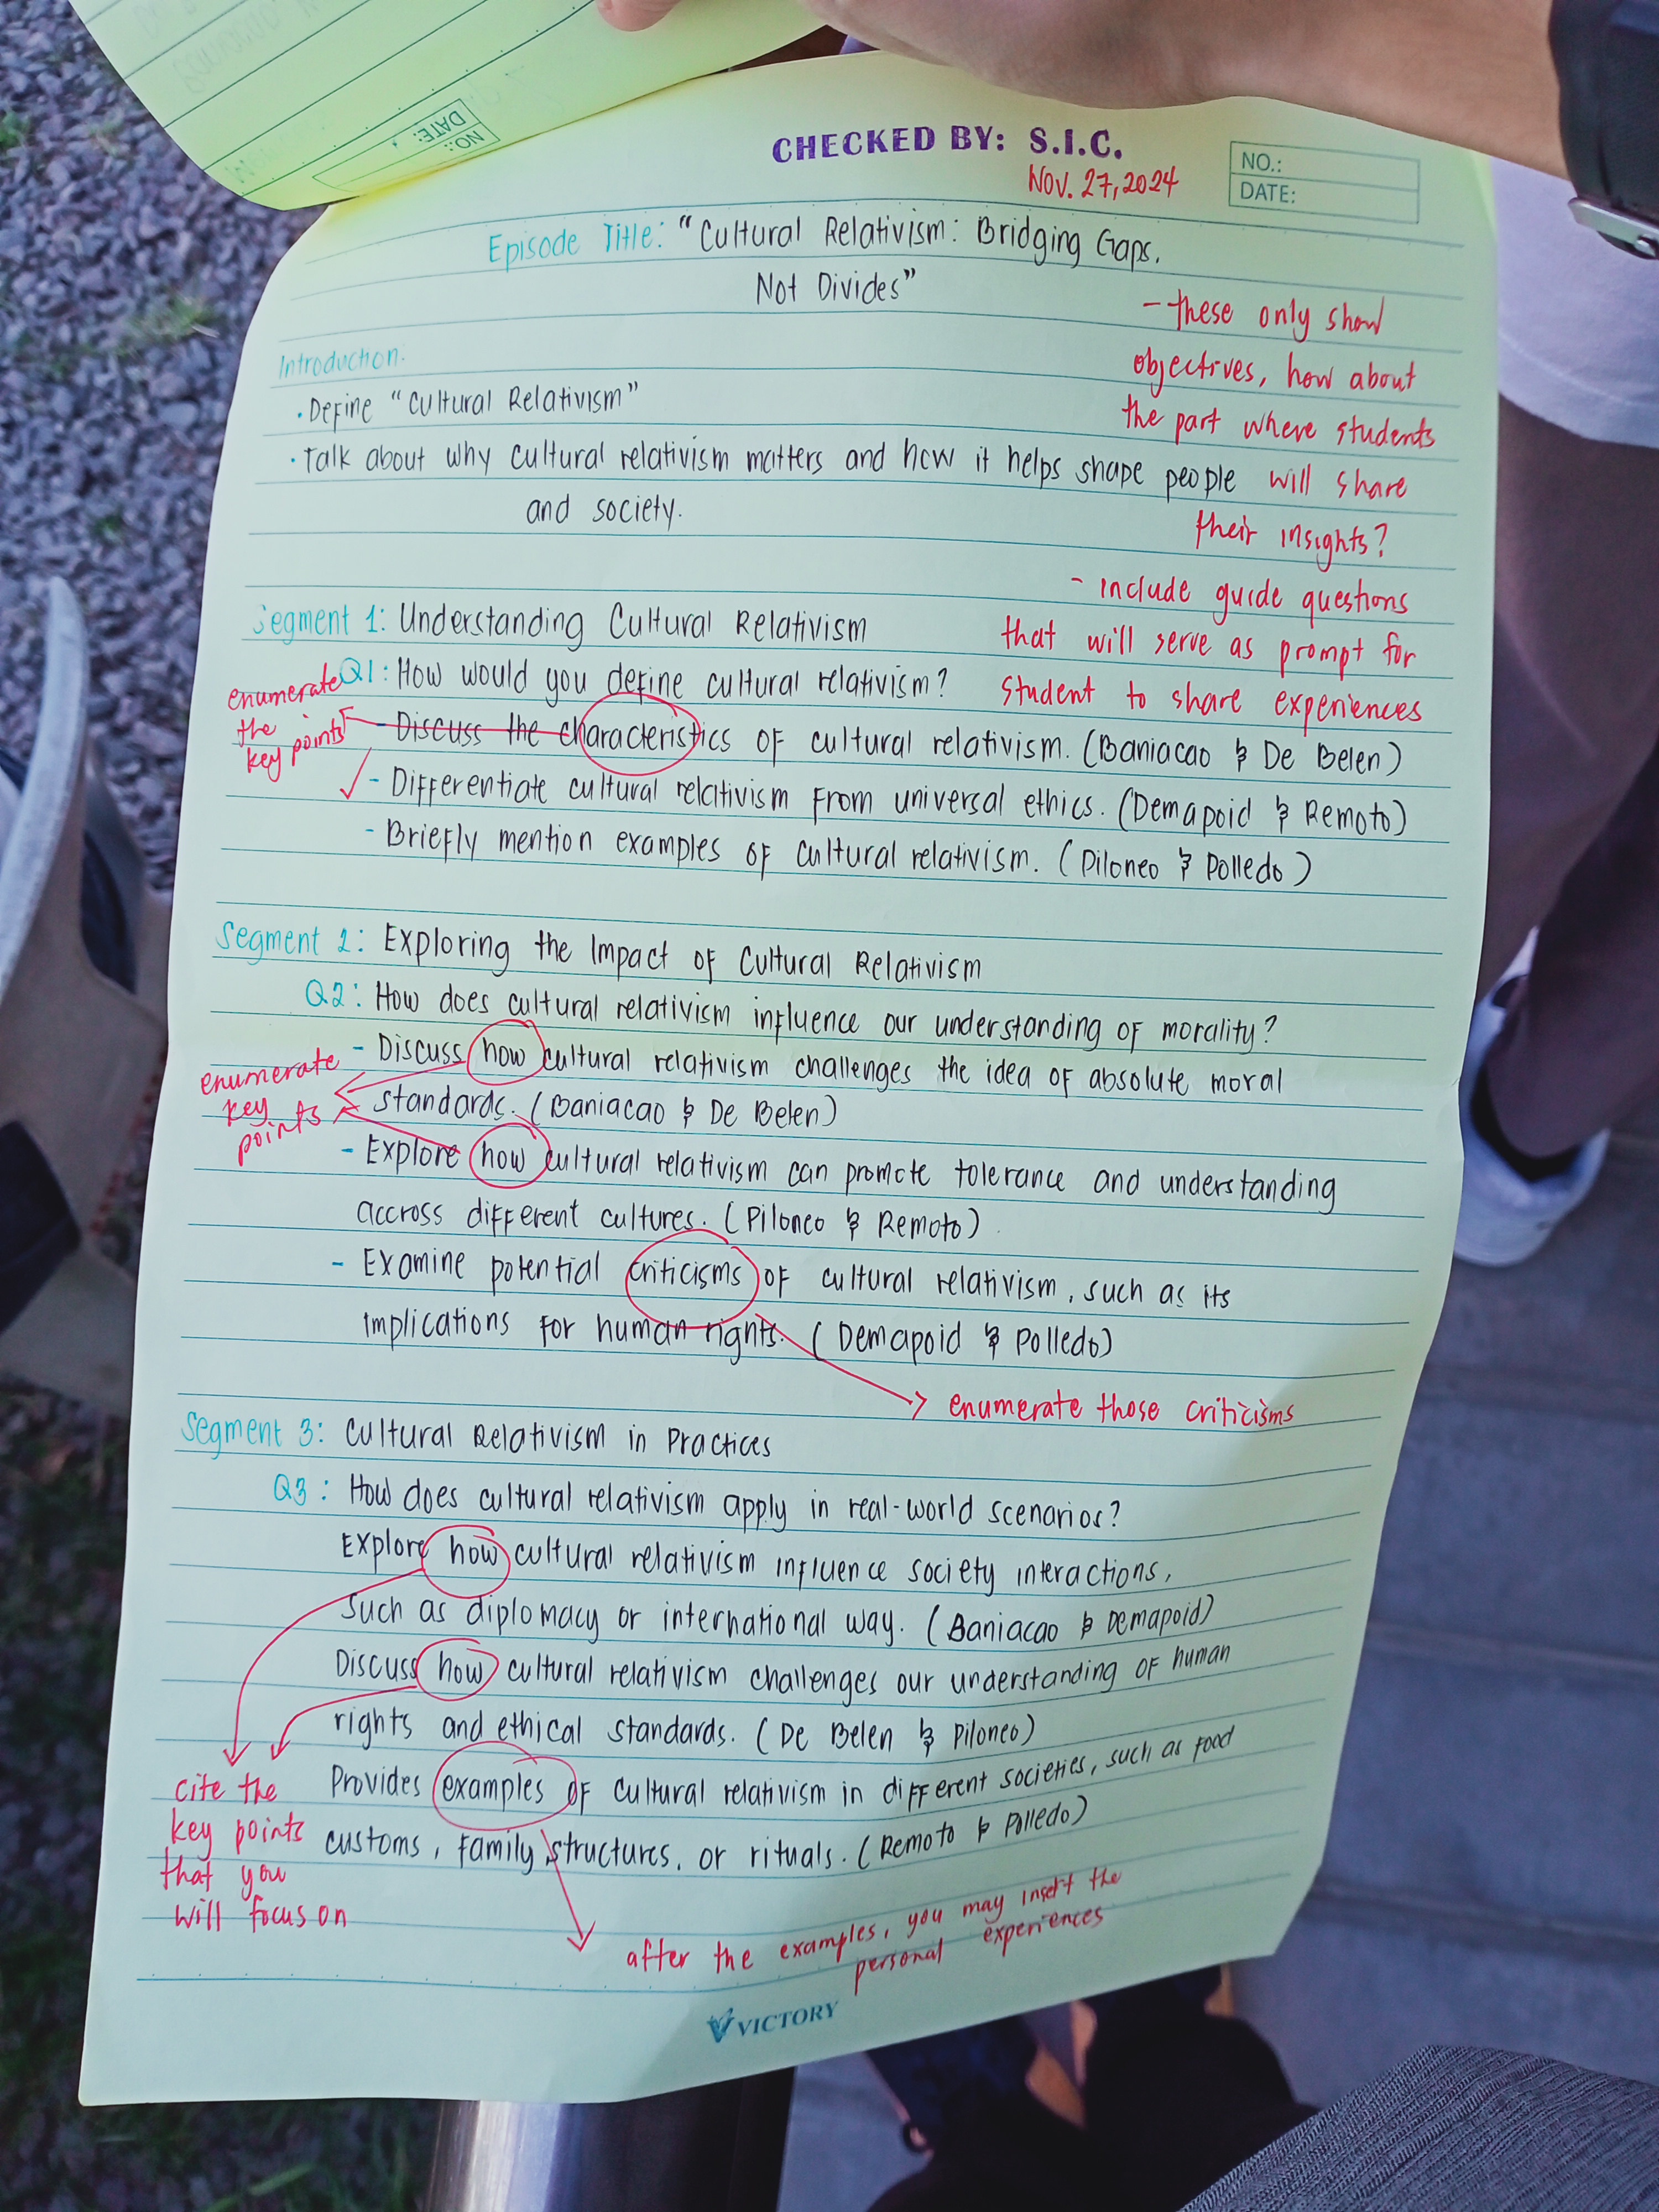 NO.:
DATE:
CHECKED BY: S.I.C.
Nov. 27, 2024
NO.:
DATE:
Episode Title: "Cultural Relativism: Bridging Gaps,
Not Divides"
- these only show
objectives, how about
the part where students
will share
their insights?
- include guide questions
that will serve as prompt for
student to share experiences
Introduction:
• Define "Cultural Relativism"
• Talk about why cultural relativism matters and how it helps shape people
and society.
Segment 1: Understanding Cultural Relativism
Q1: How would you define cultural relativism?
enumerate
the
key points
- Discuss the characteristics of cultural relativism. (Baniacao & De Belen)
- Differentiate cultural relativism from universal ethics. (Demapoid & Remoto)
- Briefly mention examples of cultural relativism. (Piloneo & Polledo)
Segment 2: Exploring the Impact of Cultural Relativism
Q2: How does cultural relativism influence our understanding of morality?
- Discuss how cultural relativism challenges the idea of absolute moral
standards. (Baniacao & De Belen)
enumerate
key
points
- Explore how cultural relativism can promote tolerance and understanding
accross different cultures. (Piloneo & Remoto)
- Examine potential criticisms of cultural relativism, such as its
implications for human rights. (Demapoid & Polledo)
enumerate those criticisms
Segment 3: Cultural Relativism in Practices
Q3: How does cultural relativism apply in real-world scenarios?
Explore how cultural relativism influence society interactions,
such as diplomacy or international way. (Baniacao & Demapoid)
Discuss how cultural relativism challenges our understanding of human
rights and ethical standards. (De Belen & Piloneo)
Provides examples of cultural relativism in different societies, such as food
customs, family structures, or rituals. (Remoto & Polledo)
cite the
key points
that you
will focus on
after the examples, you may insert the
personal experiences
VICTORY